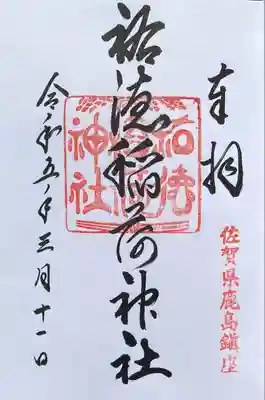 奉拝
佐賀県鹿島鎮座
祐徳稲荷神社
祐徳
稲荷
神社
令和五年三月十一日